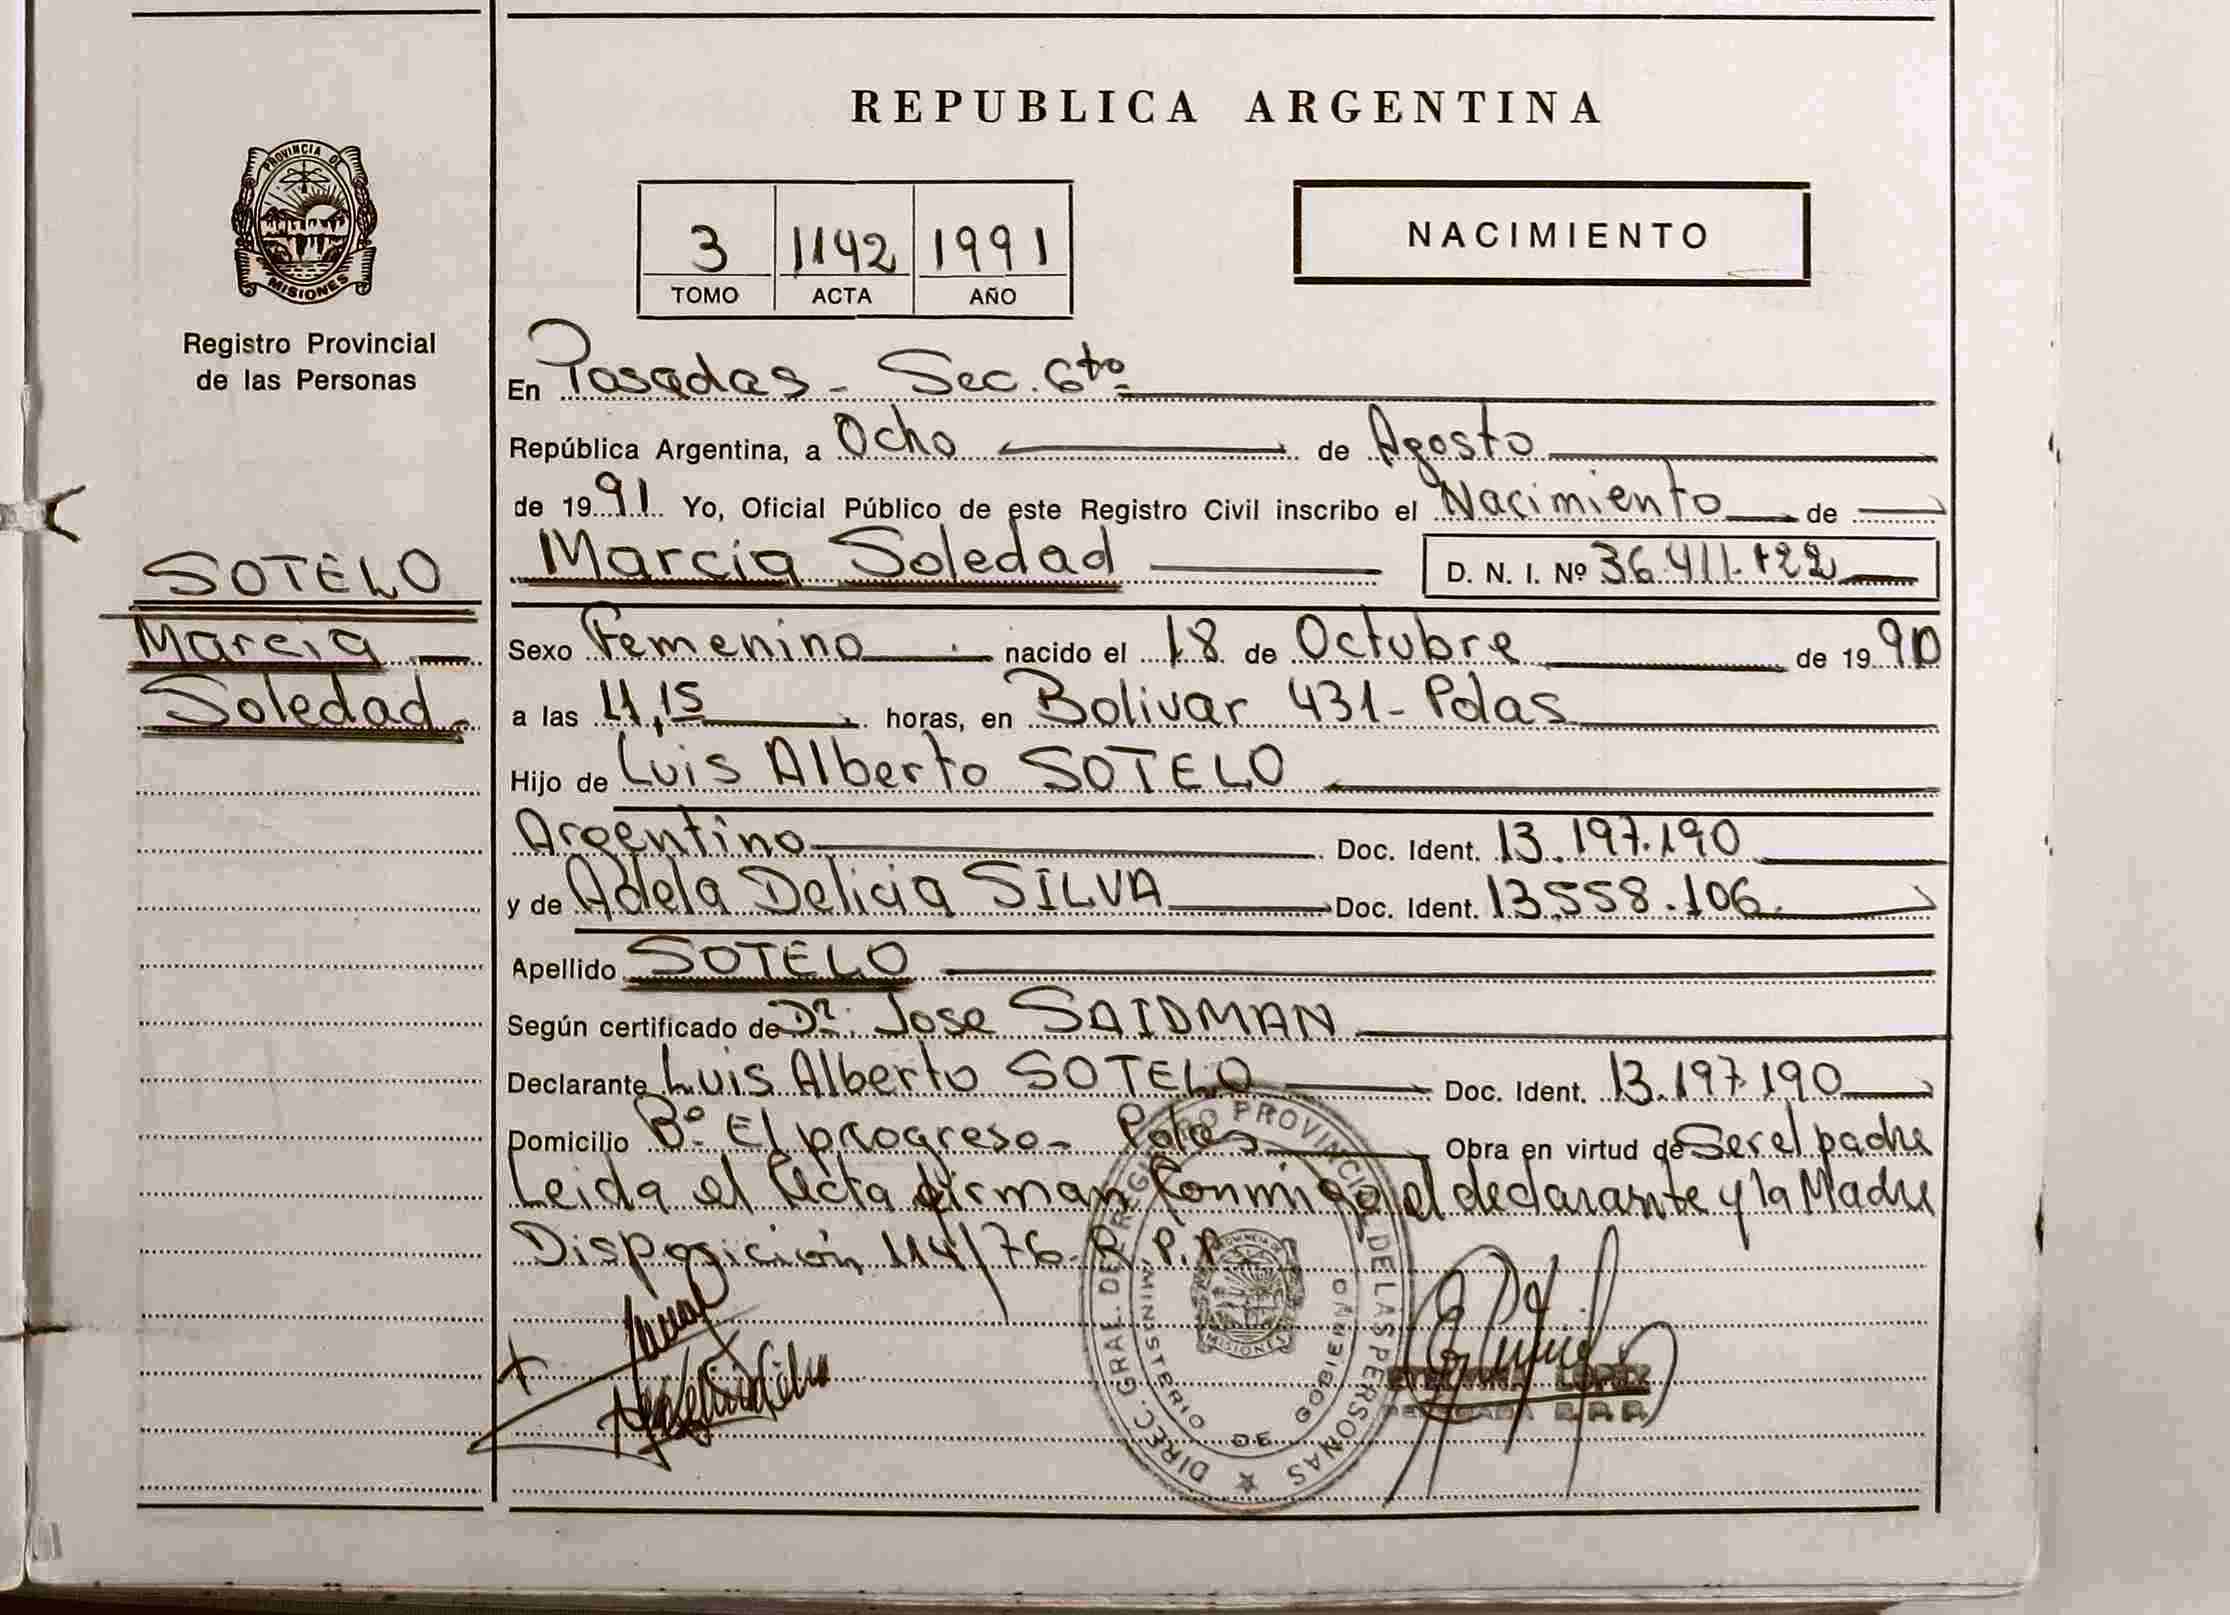 REPUBLICA ARGENTINA
PROVINCIA DE
MISIONES
Registro Provincial
de las Personas
3 1142 1991
TOMO ACTA AÑO
NACIMIENTO
En Posadas - Sec. 6to
República Argentina, a Ocho de Agosto
de 1991 Yo, Oficial Público de este Registro Civil inscribo el Nacimiento de
Marcia Soledad D. N. I. Nº 36.411.722
SOTELO
Marcia
Soledad
Sexo Femenino nacido el 18 de Octubre de 1990
a las 11,15 horas, en Bolivar 431 - Pdas
Hijo de Luis Alberto SOTELO
Argentino Doc. Ident. 13.197.190
y de Adela Delicia SILVA Doc. Ident. 13.558.106.
Apellido SOTELO
Según certificado de Dr. Jose SAIDMAN
Declarante Luis Alberto SOTELO Doc. Ident. 13.197.190
Domicilio Bº El progreso - Pdas Obra en virtud de Ser el padre
Leida el Acta firman Conmigo el declarante y la Madre
Disposición 114/76-R.P.P.
DIREC. GRAL. DEL REGISTRO PROVINCIAL DE LAS PERSONAS
MINISTERIO DE GOBIERNO
MISIONES
LOPEZ
R.P.P.